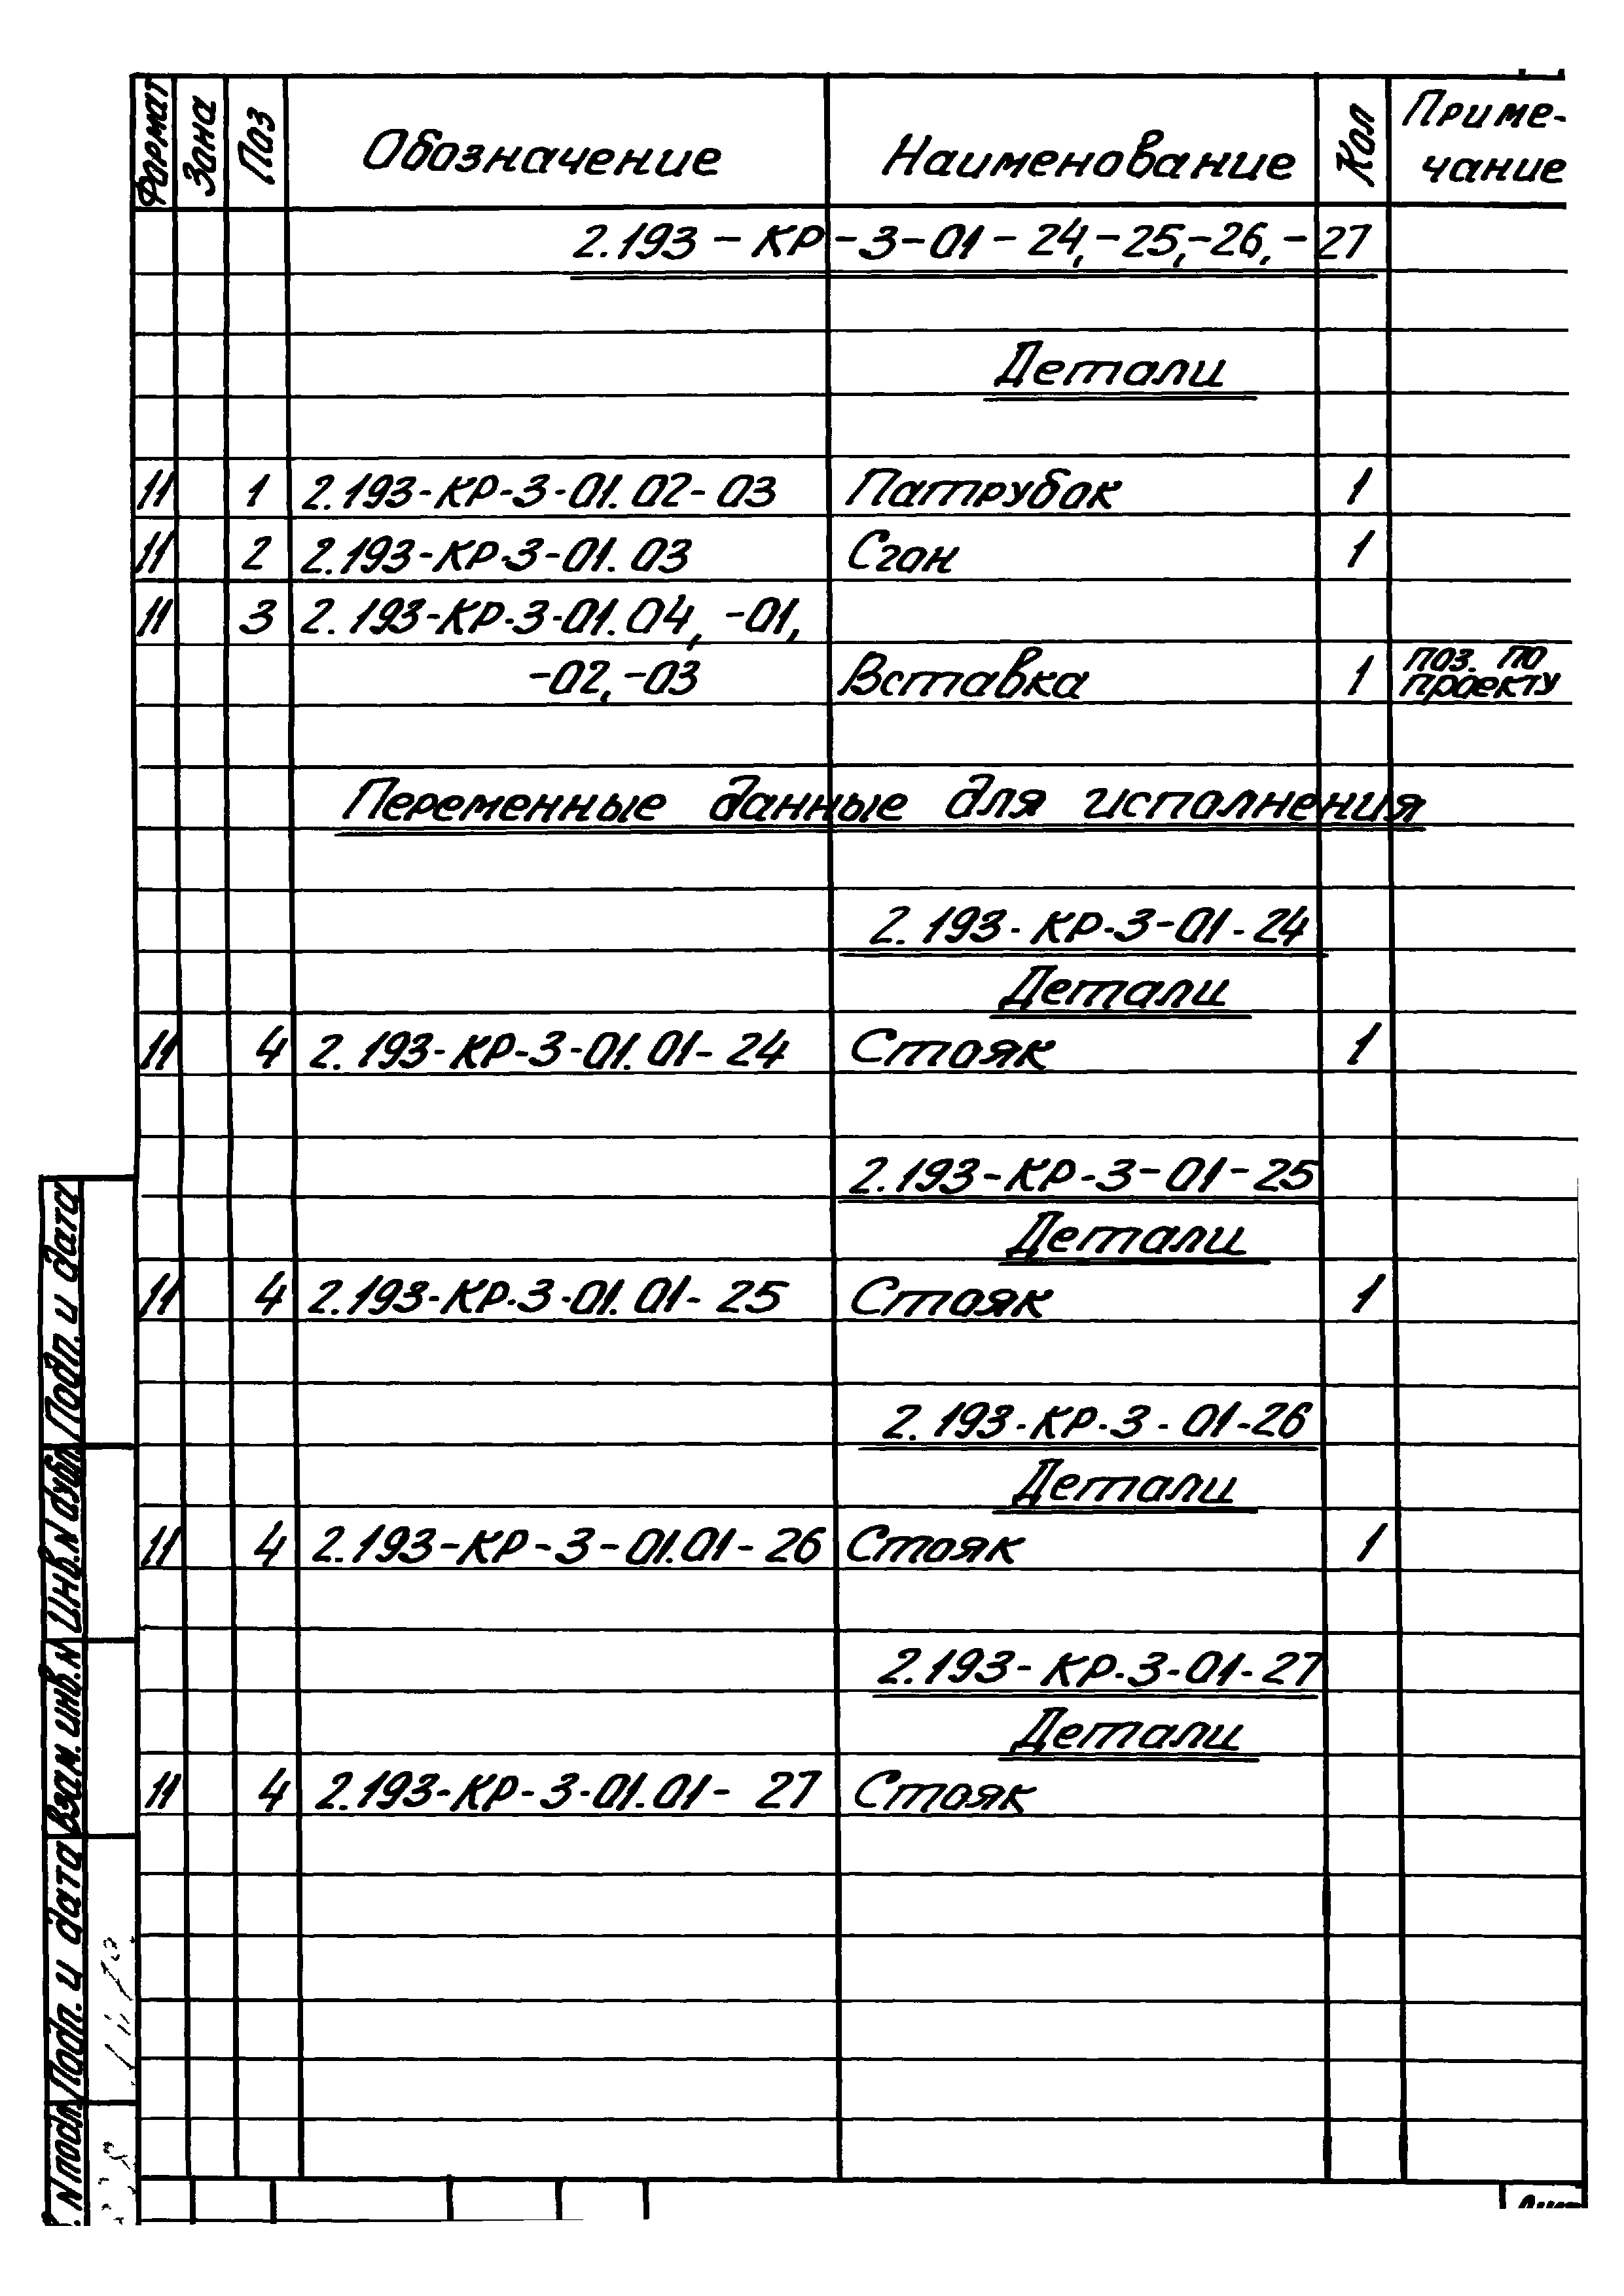 Формат Зона Поз Обозначение Наименование Кол Приме-
чание
2.193-КР-3-01-24,-25,-26,-27
Детали
11 1 2.193-КР-3-01.02-03 Патрубок 1
11 2 2.193-КР-3-01.03 Сгон 1
11 3 2.193-КР-3-01.04, -01,
-02,-03 Вставка 1 поз. по
проекту
Переменные данные для исполнения
2.193-КР-3-01-24
Детали
11 4 2.193-КР-3-01.01-24 Стояк 1
2.193-КР-3-01-25
Детали
11 4 2.193-КР-3-01.01-25 Стояк 1
2.193-КР-3-01-26
Детали
11 4 2.193-КР-3-01.01-26 Стояк 1
2.193-КР-3-01-27
Детали
11 4 2.193-КР-3-01.01-27 Стояк
Подп. и дата
Инв.N дубл
Взам. инв.N
Подп. и дата
N подл.